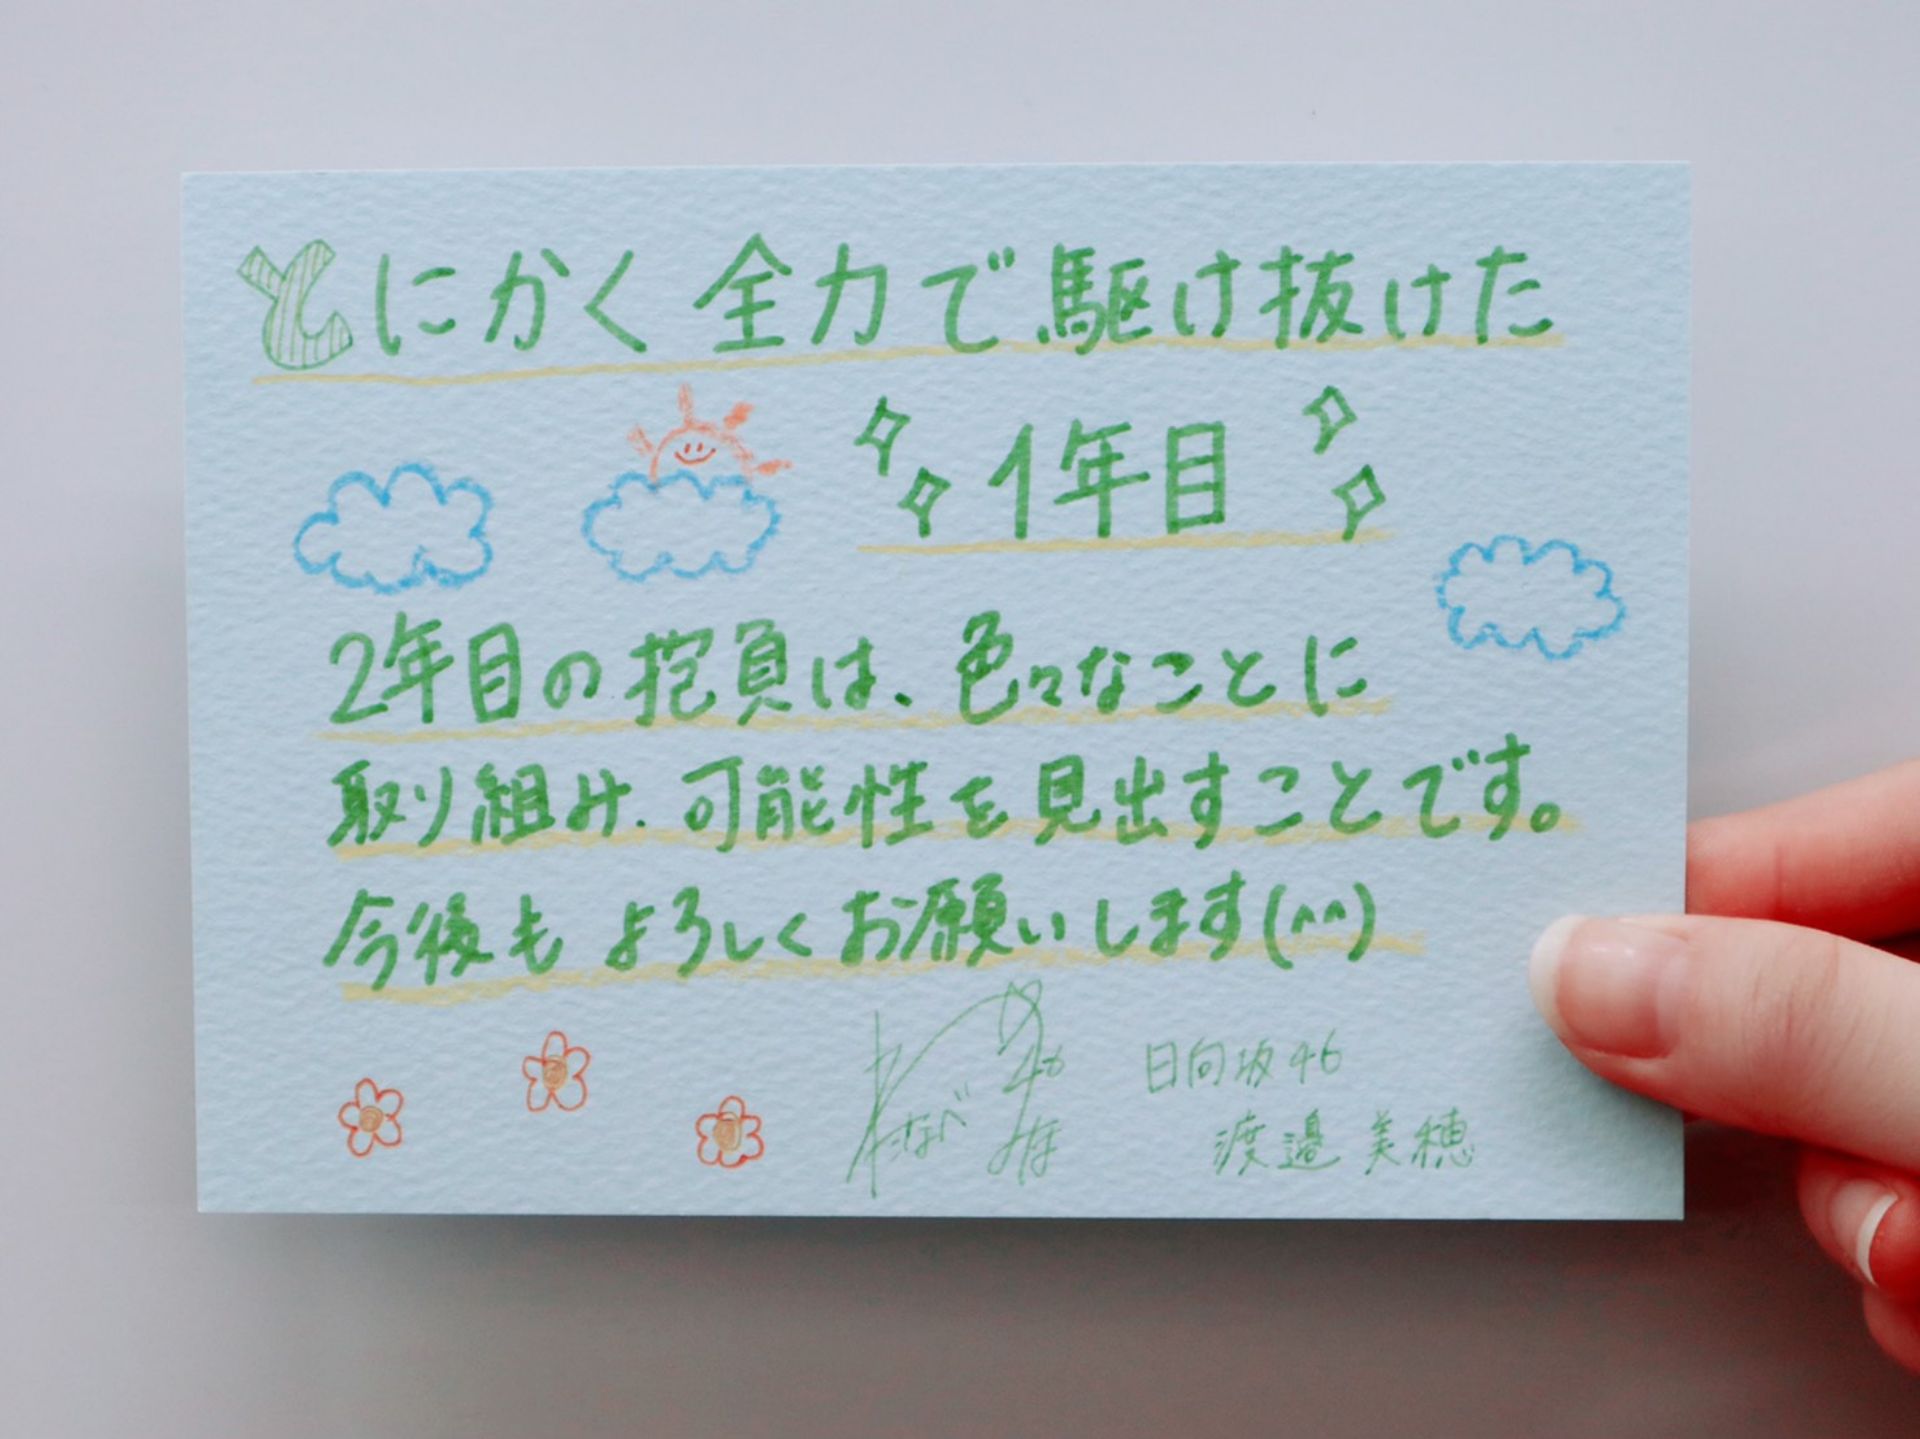 とにかく全力で駆け抜けた
1年目
2年目の抱負は、色々なことに
取り組み、可能性を見出すことです。
今後もよろしくお願いします(^^)
わたなべ みほ
日向坂46
渡邉 美穂